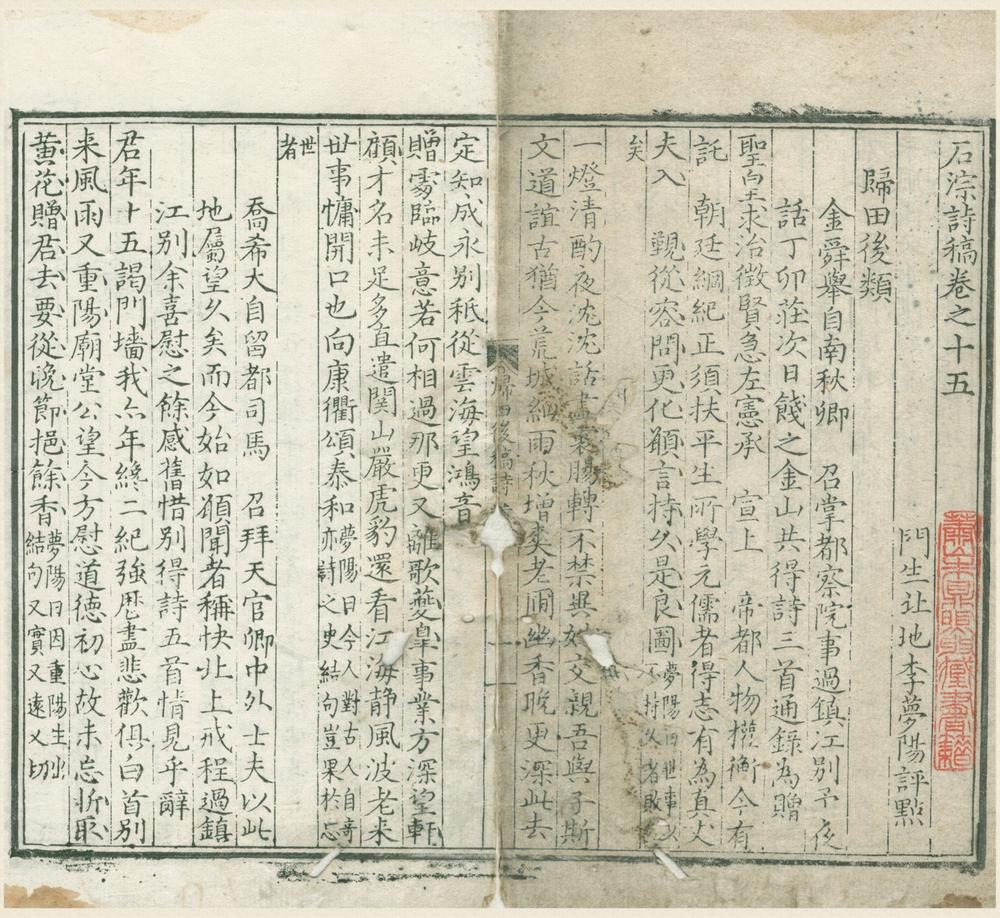 石淙詩稿卷之十五
門生北地李夢陽評點
歸田後類
金舜舉自南秋卿　召掌都察院事過鎮江別予夜
話丁卯莊次日餞之金山共得詩三首通錄為贈
聖皇求治徵賢急左憲承　宣上　帝都人物權衡今有
託　朝廷綱紀正須扶平生所學元儒者得志有為真大
夫入　覲從容問更化願言持久是良圖夢陽曰世事以
不持久者敗
矣
一燈清酌夜沈沈話盡衷腸轉不禁異姓交親吾與子斯
文道誼古猶今荒城細雨秋增爽老圃幽香晚更深此去
定知成永別秪從雲海望鴻音
歸田後稿詩
一
贈處臨岐意若何相過那更又離歌夔皐事業方深望軒
顧才名未足多直遣関山嚴虎豹還看江海静風波老来
世事慵開口也向康衢頌泰和夢陽曰今人對古人自奇
亦詩之史結句豈果於忘
世
者
喬希大自留都司馬　召拜天官卿中外士夫以此
地屬望久矣而今始如願聞者稱快北上戒程過鎮
江別余喜慰之餘感舊惜別得詩五首情見乎辭
君年十五謁門墻我亦年纔二紀強歷盡悲歡俱白首別
来風雨又重陽廟堂公望今方慰道德初心故未忘折取
黃花贈君去要從晚節挹餘香夢陽曰因重陽生出
結句又實又遠又切